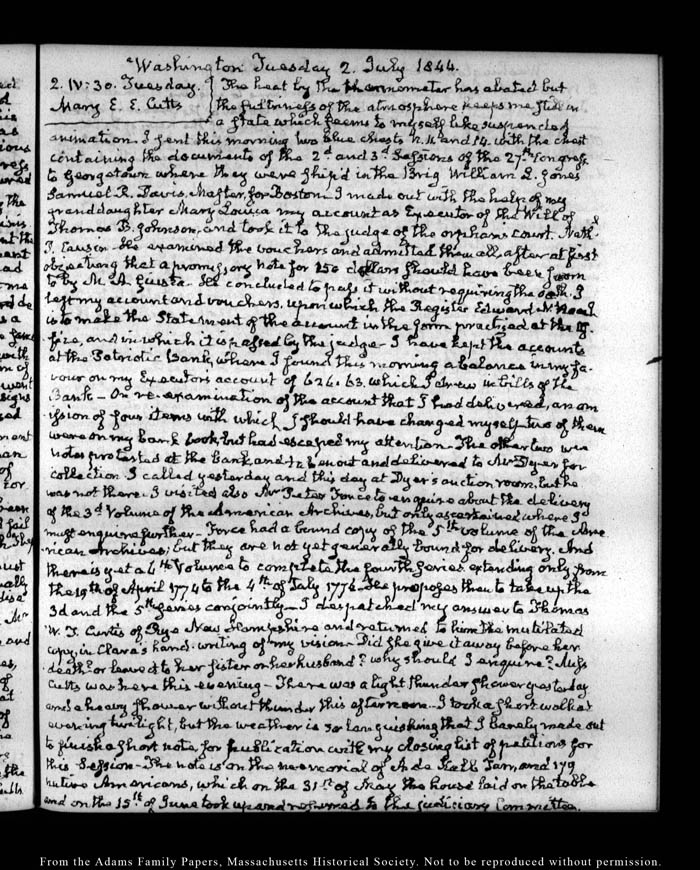 Washington Tuesday 2. July 1844.
2. IV:30. Tuesday. The heat by the thermometer has abated but
Mary E. E. Cutts the sultriness of the atmosphere keeps me still in
a state which seems to myself like suspended
animation. I sent this morning two blue chests N. 11 and 14. with the chest
containing the documents of the 2d and 3d Sessions of the 27th Congress
to Georgetown where they were ship'd in the Brig William L. Jones
Samuel R. Davis, Master, for Boston. I made out with the help of my
granddaughter Mary Louisa my account as Executor of the Will of
Thomas B. Johnson, and took it to the judge of the orphans court. Nathl
P. Causin. He examined the vouchers and admitted them all, after at first
objecting that a promissory note for 150 dollars should have been sworn
to by M. A. Giusta. He concluded to pass it without requiring the oath. I
left my account and vouchers, upon which the Register Edward N. Roach
is to make the Statement of the account in the form practised at the of-
fice, and in which it is passed by the judge. I have kept the accounts
at the Patriotic Bank, where I found this morning a balance in my fa-
vour on my Executor's account of 624:63. which I drew in bills of the
Bank — On re-examination of the account that I had delivered, an om
ission of four items with which I should have charged myself two of them
were on my bank book, but had escaped my attention. The other two were
notes protested at the Bank, and taken out and delivered to Mr Dyer for
collection. I called yesterday and this day at Dyer's auction room, but he
was not there. I visited also Mr Peter Force to enquire about the delivery
of the 3d Volume of the American Archives, but only ascertained where I
must enquire further — Force had a bound copy of the 5th volume of the Ame
rican Archives; but they are not yet generally bound for delivery. And
there is yet a 6th Volume to complete the fourth Series extending only from
the 19th of April 1774 to the 4th of July 1776. He proposes then to take up the
3d and the 5th Series conjointly — I despatched my answer to Thomas
W. T. Curtis of Rye New Hampshire and returned to him the mutilated
copy, in Clara's hand-writing of my vision. Did she give it away before her
death? or leave it to her sister or her husband? why should I enquire? Miss
Cutts was here this evening — There was a light thunder shower yesterday
and a heavy shower without thunder this afternoon. I took a short walk at
evening twilight, but the weather is so languishing that I barely made out
to finish a short note, for publication with my closing list of petitions for
this Session — The note is on the memorial of A de Kalb Tarr, and 179
native Americans, which on the 31st of May the house laid on the table
and on the 15th of June took up and referred to the judiciary Committee.
From the Adams Family Papers, Massachusetts Historical Society. Not to be reproduced without permission.